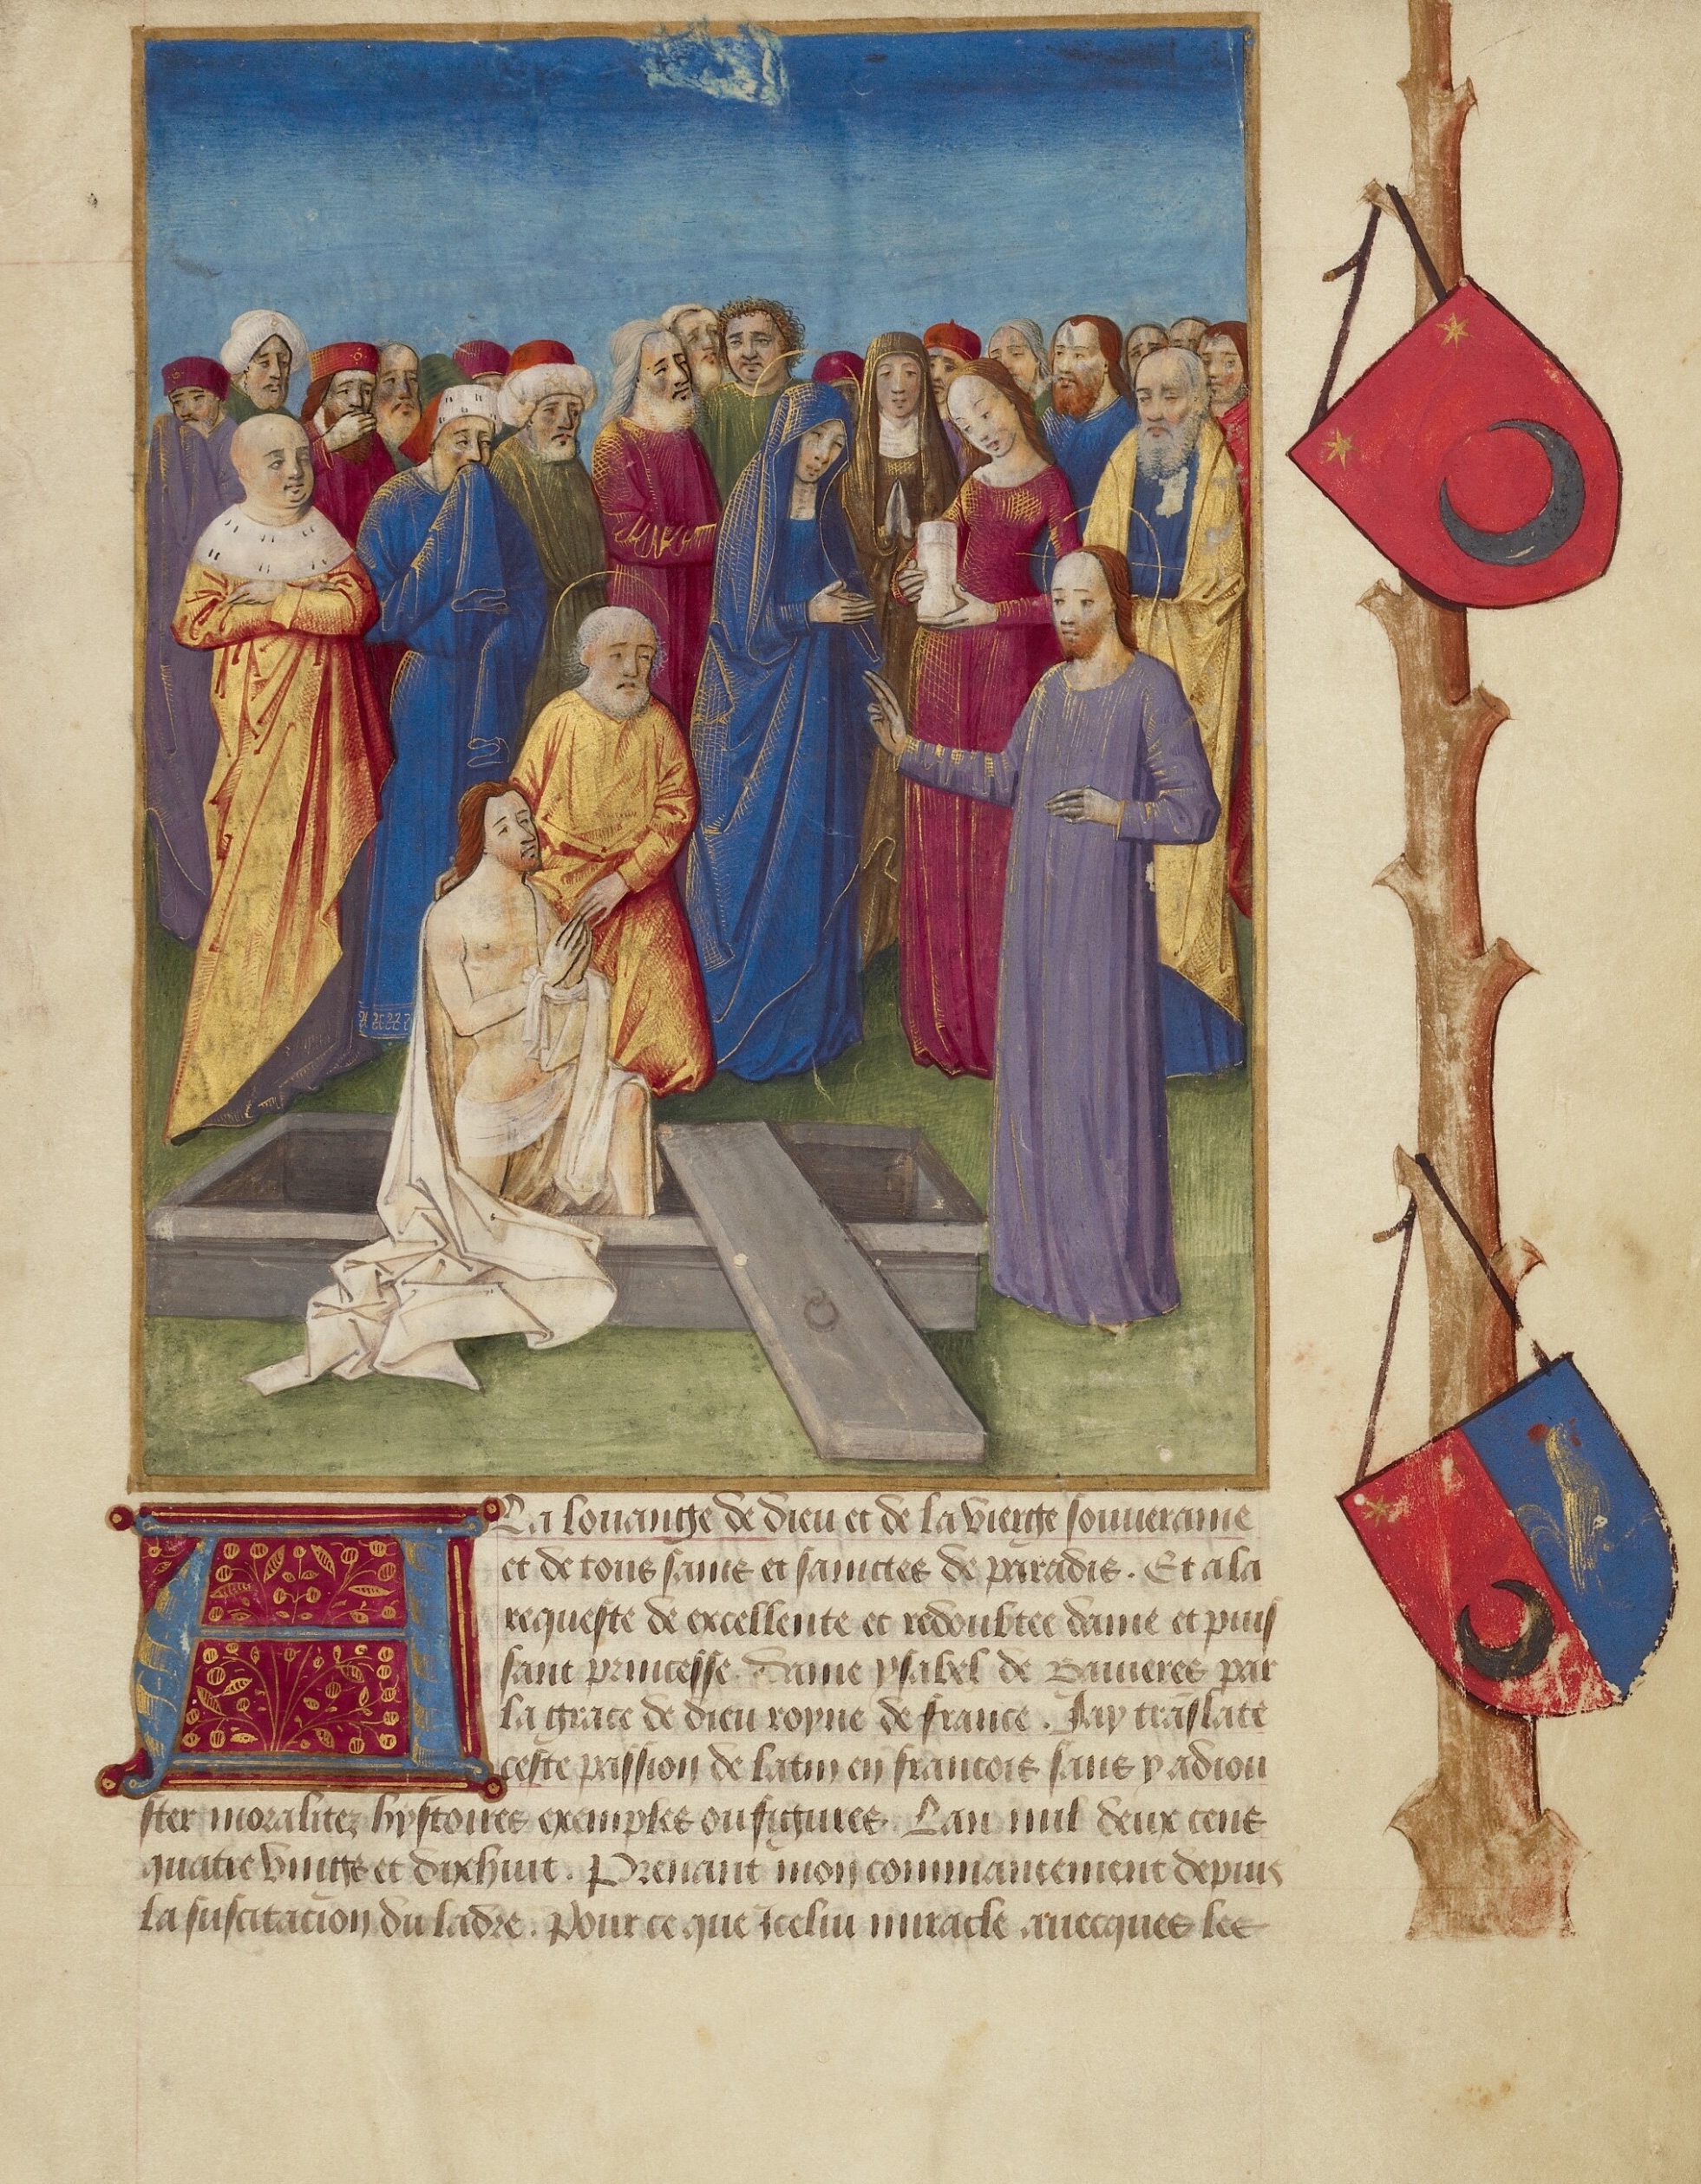 A La louange de dieu et de la vierge souueraine
et de tous sains et sainctes de paradis. Et a la
requeste de excellente et redoubtee dame et puis
sant princesse. Dame ysabel de Bauieres par
la grace de dieu royne de france. Jay trãslate
ceste passion de latin en francois sans y adiou
ster moralitez hystoires exemples ou figures. Lan mil deux cens
quatre vingts et dixhuit. Prenant mon commancement depuis
la suscitacion du ladre. Pour ce que icelui miracle auecques les